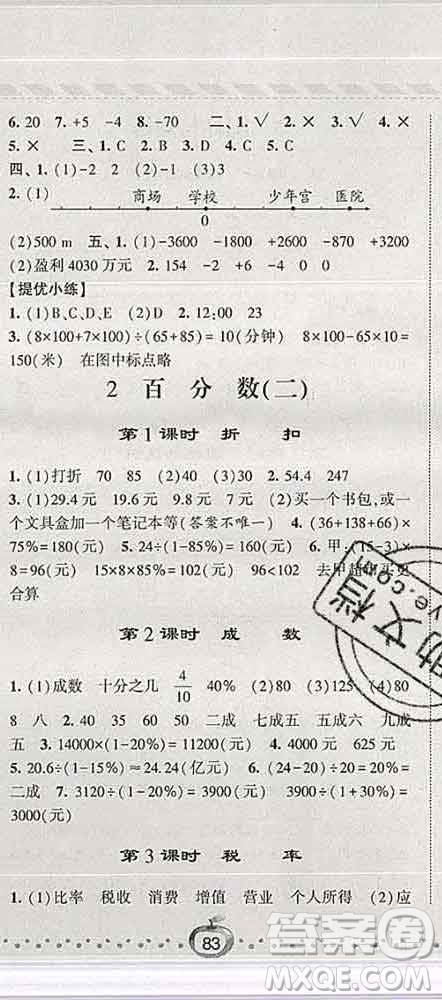 6. 20 7. +5 -4 8. -70 二、1. √ 2. × 3. √ 4. ×
5. × 三、1. C 2. B 3. C 4. C 5. C
四、1. (1)-2 2 (2)-1 (3)3
2. (1) 商场 学校 少年宫 医院
0
(2)500 m 五、1. (1)-3600 -1800 +2600 +2870 +3200
(2)盈利4030万元 2. 154 -2 -6 +2 +6
【提优小练】
1. (1)B、C、D、E (2)D 2. 12:00 23
3. (8×100+7×100)÷(65+85)=10(分钟) 8×100-65×10=
150(米) 在图中标点略
2 百分数(二)
第1课时 折扣
1. (1)打折 70 85 (2)40 (3)20 2. 54.4 247
3. (1)29.4元 19.6元 9.8元 7.84元 (2)买一个书包,或
一个文具盒加一个笔记本等(答案不唯一) 4. (36+138+66)×
75%=180(元) 5. 24÷(1-85%)=160(元) 6. 甲:(15-3)×
8=96(元) 15×8×85%=102(元) 96<102 去甲超市买更
合算
第2课时 成数
1. (1)成数 十分之几 4/10 40% (2)80 (3)125 (4)80
8 八 2. 40 35 60 50 二成 七成五 五成六 九成
五 3. 14000×(1-20%)=11200(元) 4. 4000元 625元
5. 20.6÷(1-15%)≈24.24(亿元) 6. (24-20)÷20=20%=
二成 7. 3120÷(1-20%)=3900(元) 3900÷(1+30%)=
3000(元)
第3课时 税率
1. (1)比率 税收 消费 增值 营业 个人所得 (2)应
83
答案圈
MXQE.COM